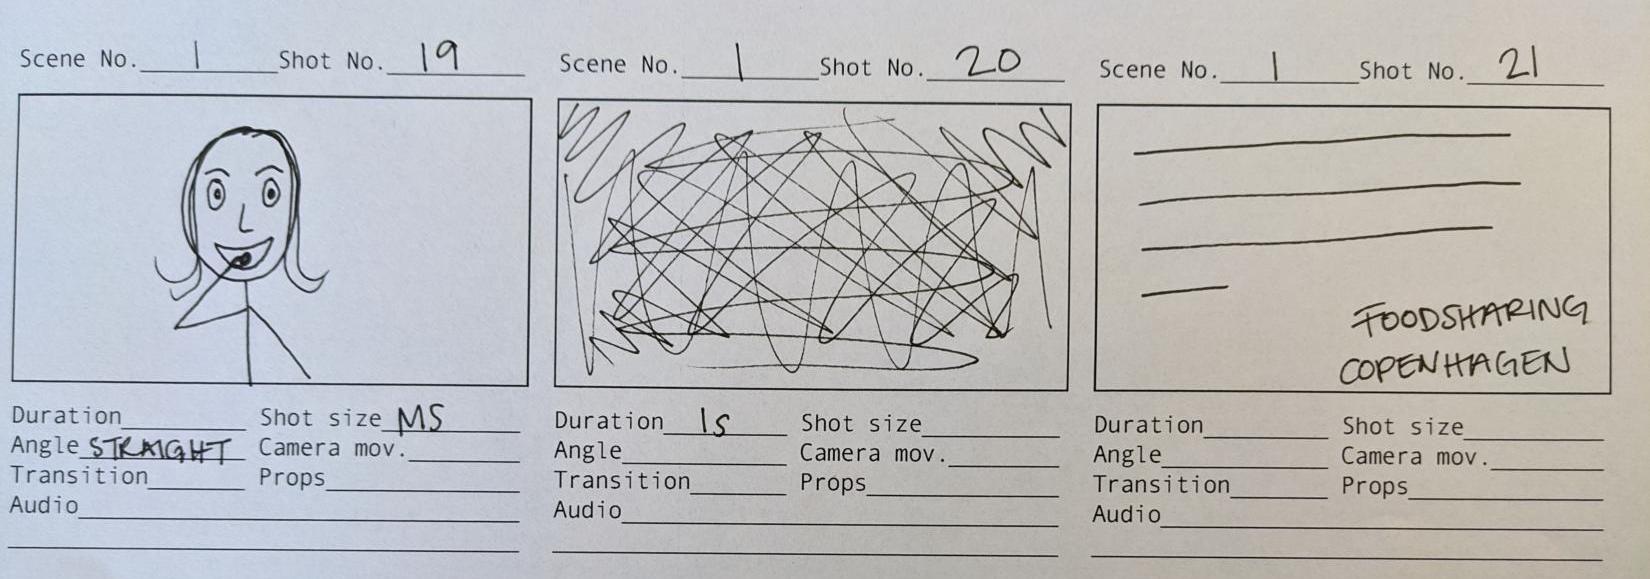 Scene No. 1 Shot No. 19
Duration Shot size MS
Angle STRAIGHT Camera mov.
Transition Props
Audio
Scene No. 1 Shot No. 20
Duration 1s Shot size
Angle Camera mov.
Transition Props
Audio
Scene No. 1 Shot No. 21
FOODSHARING
COPENHAGEN
Duration Shot size
Angle Camera mov.
Transition Props
Audio